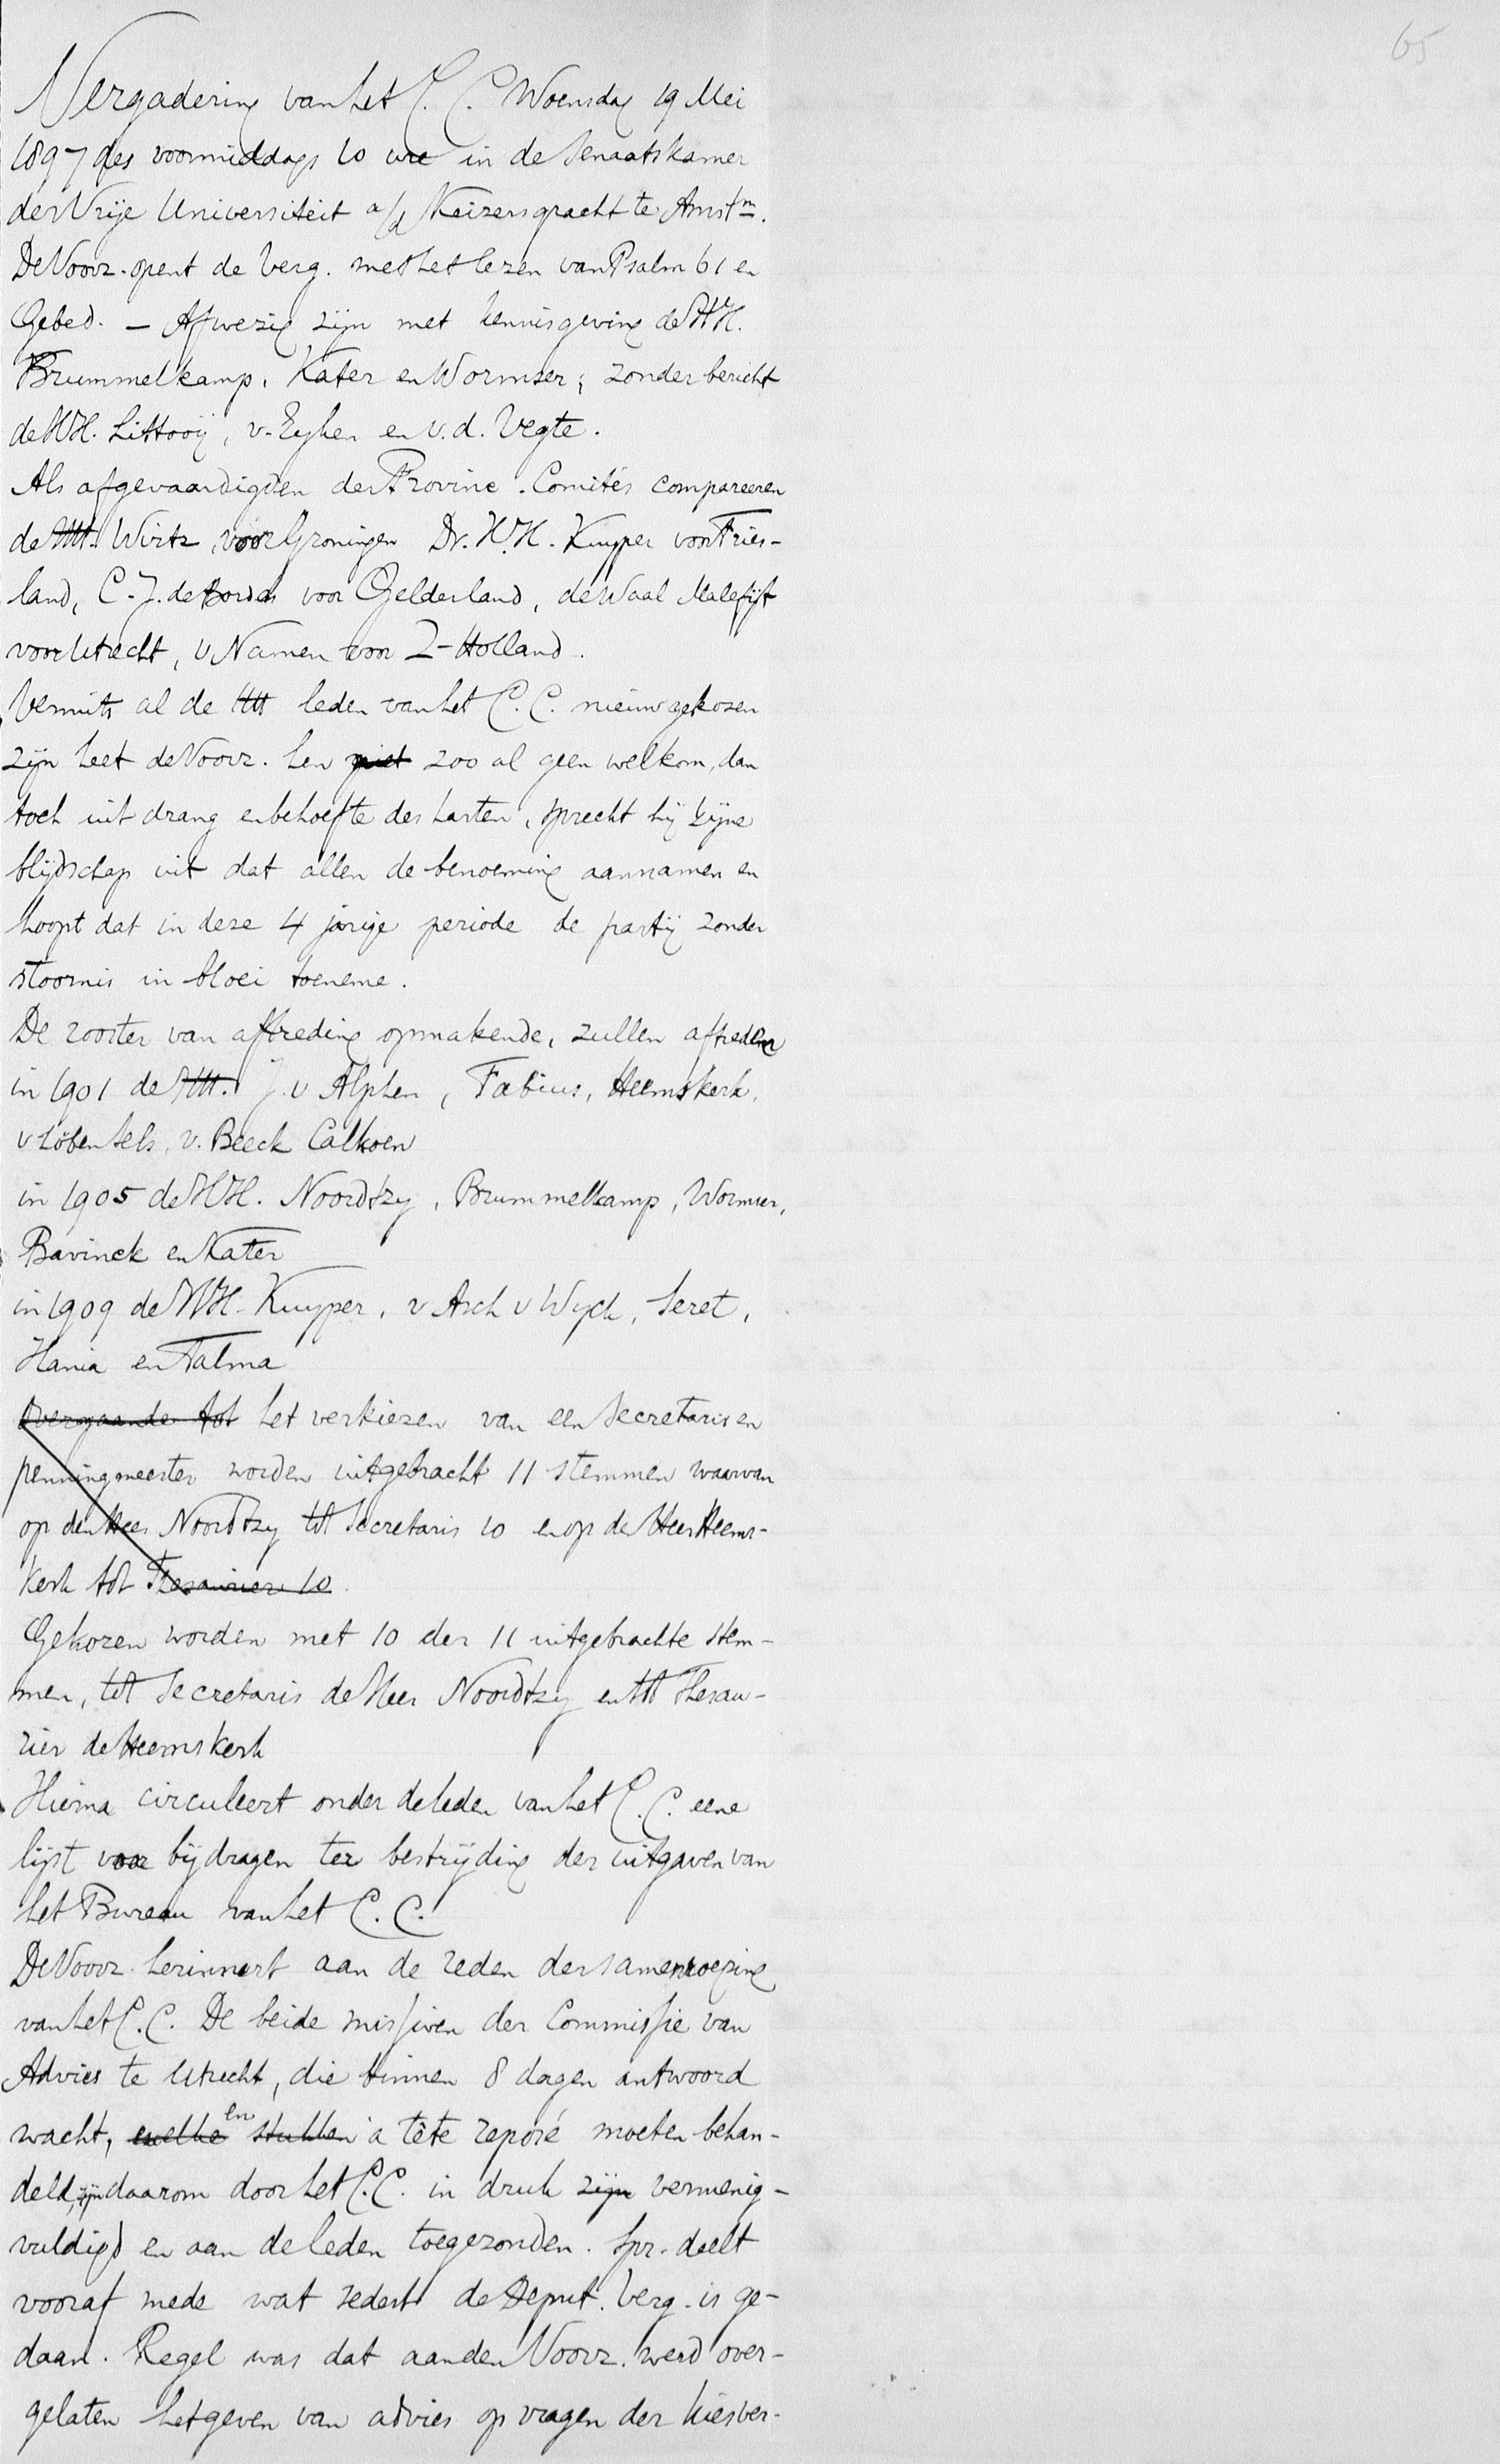 65
Vergadering van het C. C. Woensdag 19 Mei
1897 des voormiddags 10 ure in de Senaatskamer
der Vrije Universiteit a/d Keizersgracht te Amstm.
De Voorz. opent de Verg. met het lezen van Psalm 61 en
Gebed. — Afwezig zijn met kennisgeving de HH.
Brummelkamp, Kater en Wormser; zonder bericht
de HH. Littooij, v. Eyken en v.d. Vegte.
Als afgevaardigden der Provinc. Comités compareeren
de HH. Wirtz voor Groningen Dr. H.H. Kuyper voor Fries-
land, C. J. de Bordes voor Gelderland, de Waal Malefijt
voor Utrecht, v Namen voor Z-Holland.
Vermits al de HH leden van het C. C. nieuw gekozen
zijn heet de Voorz. hen niet zoo al geen welkom, dan
toch uit drang en behoefte des harten, spreekt hij zijne
blijdschap uit dat allen de benoeming aannamen en
hoopt dat in deze 4 jarige periode de partij zonder
stoornis in bloei toeneme.
De rooster van aftreding opmakende, zullen aftreden
in 1901 de HH. J. v Alphen, Fabius, Heemskerk,
v Löben Sels, v. Beeck Calkoen
in 1905 de HH. Noordtzy, Brummelkamp, Wormser,
Bavinck en Kater
in 1909 de HH. Kuyper, v Asch v Wyck, Seret,
Hania en Talma
Overgaande tot het verkiezen van een Secretaris en
penningmeester worden uitgebracht 11 stemmen waarvan
op den Heer Noordtzy tot Secretaris 10 en op de Heer Heems-
kerk tot Thesaurier 10.
Gekozen worden met 10 der 11 uitgebrachte stem-
men, tot Secretaris de Heer Noordtzy en tot Thesau-
rier de Heemskerk
Hierna circuleert onder de leden van het C. C. eene
lijst voor bijdragen ter bestrijding der uitgaven van
het Bureau van het C. C.
De Voorz. herinnert aan de reden der samenroeping
van het C. C. De beide missiven der Commissie van
Advies te Utrecht, die binnen 8 dagen antwoord
wacht, en welke stukken en à tête reposé moeten behan-
deld, zijn daarom door het C. C. in druk zijn vermenig-
vuldigd en aan de leden toegezonden. Spr. deelt
vooraf mede wat sedert de Deput. Verg. is ge-
daan. Regel was dat aan den Voorz. werd over-
gelaten het geven van advies op vragen der kiesver-